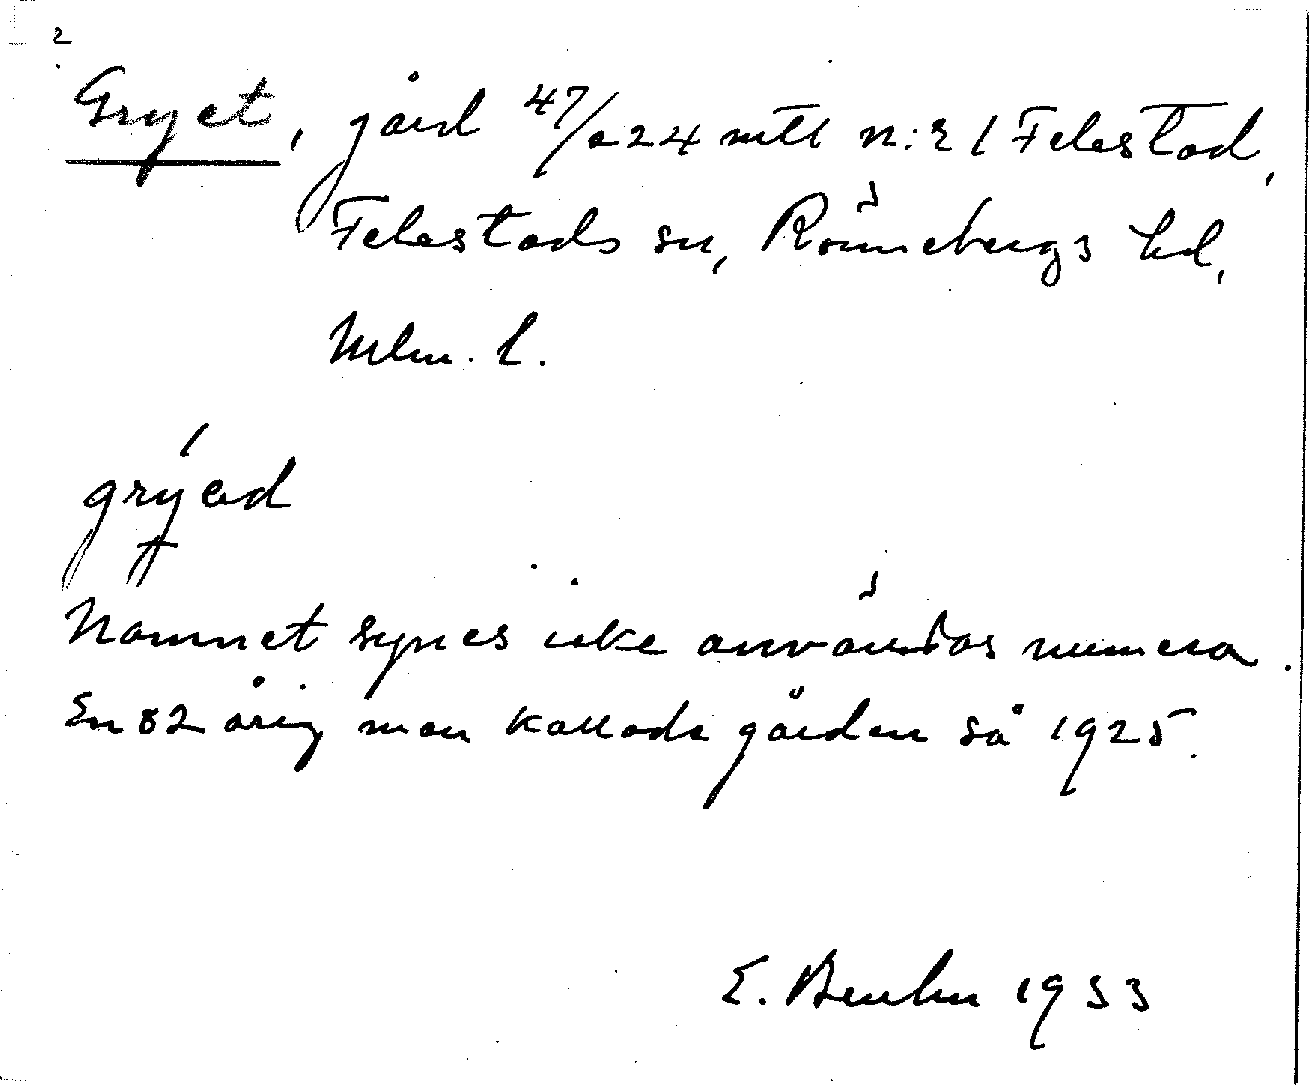 2
Gryet, gård 47/1024 mtl n:r 1 Felestad,
Felestads sn, Rönnebergs hd,
Mlm. l.
grýəd
Namnet synes icke användas numera.
En 82 årig man kallade gården så 1925.
E. 1933